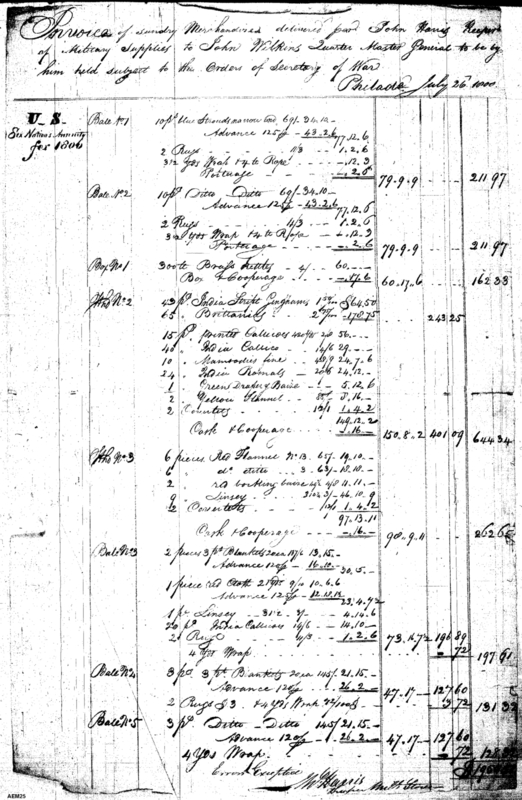 Invoice of sundry Merchandise delivered pard John Harris Keeper
of Military Supplies to John Wilkins Quarter Master General to be by
him held subject to the Orders of Secretary of War
Philada July 26th 1800
U.S. Bale No 1 10 ps blue Strouds narrow Cord 69/ 34.10 -
Six Nations Annuity Advance 125 43.2.6 77.12.6
for 1800 2 Rugs 11/3 1.2.6
3 1/2 yds Wrap & 4 Rope - .12.3
Portrage - .2.6 79.9.9 211 97
Bale No 2 10 ps Ditto - Ditto 69/ 34.10 -
Advance 125 43.2.6 77.12.6
2 Rugs 11/3 1.2.6
3 1/2 yds Wrap & 4 Rope - .12.3
Portrage - .2.6 79.9.9 211 97
Box No 1 300 lb Brass Kettles 4/ 60 . -
Box & Cooperage - .17.6 60.17.6 162 33
Hhd No 2 43 ps India Stript Ginghams $64.50
65 Brittanias 178.75 243 25
15 ps printed Callicoes 56. -
40 India Callico 14/6 29 . -
10 Mamoodies fine 48/9 24.7.6
24 India Romals 24.12. -
1 Green Baize 5.12.6
2 Yellow Flannel 8.16 -
2 Coverlets 12/1 1.4.2
149.12.2
Cask & Cooperage .16 - 150.8.2 401 09 644 34
Hhd No 3 6 pieces Red Flannel No 13. 65/ 19.10 -
6 do ditto 3 63/ 18.18 -
2 red baize 11.11 -
9 Linsey 46.10.9
2 Coverlets 12/1 1.4.2
97.13.11
Cask & Cooperage - .16 - 98.9.11 262 65
Bale No 3 2 pieces 3 pt Blankets 20 ea 137/6 13.15. -
Advance 120 16.10 - 30.5. -
1 piece red Cloth 9/10 10.6.6
Advance 125
1 ps Linsey 3/ 4.14.6
20 ps India Callicoes 14/6 14.10 -
2 Rugs 11/3 1.2.6 196 89
4 yds Wrap - 72 197 61
Bale No 4 3 ps 3 pt Blankets 20 ea 145/ 21.15. -
Advance 120 26.2 - 47.17 - 127 60
2 Rugs $3 & 4 yds Wrap 3 72 131 32
Bale No 5 3 ps Ditto - Ditto 145/ 21.15. -
Advance 120 26.2 - 47.17 - 127 60
4 Yds Wrap - 72
Errors Excepted
Jno Harris
Keeper Milt Stores
AEM25